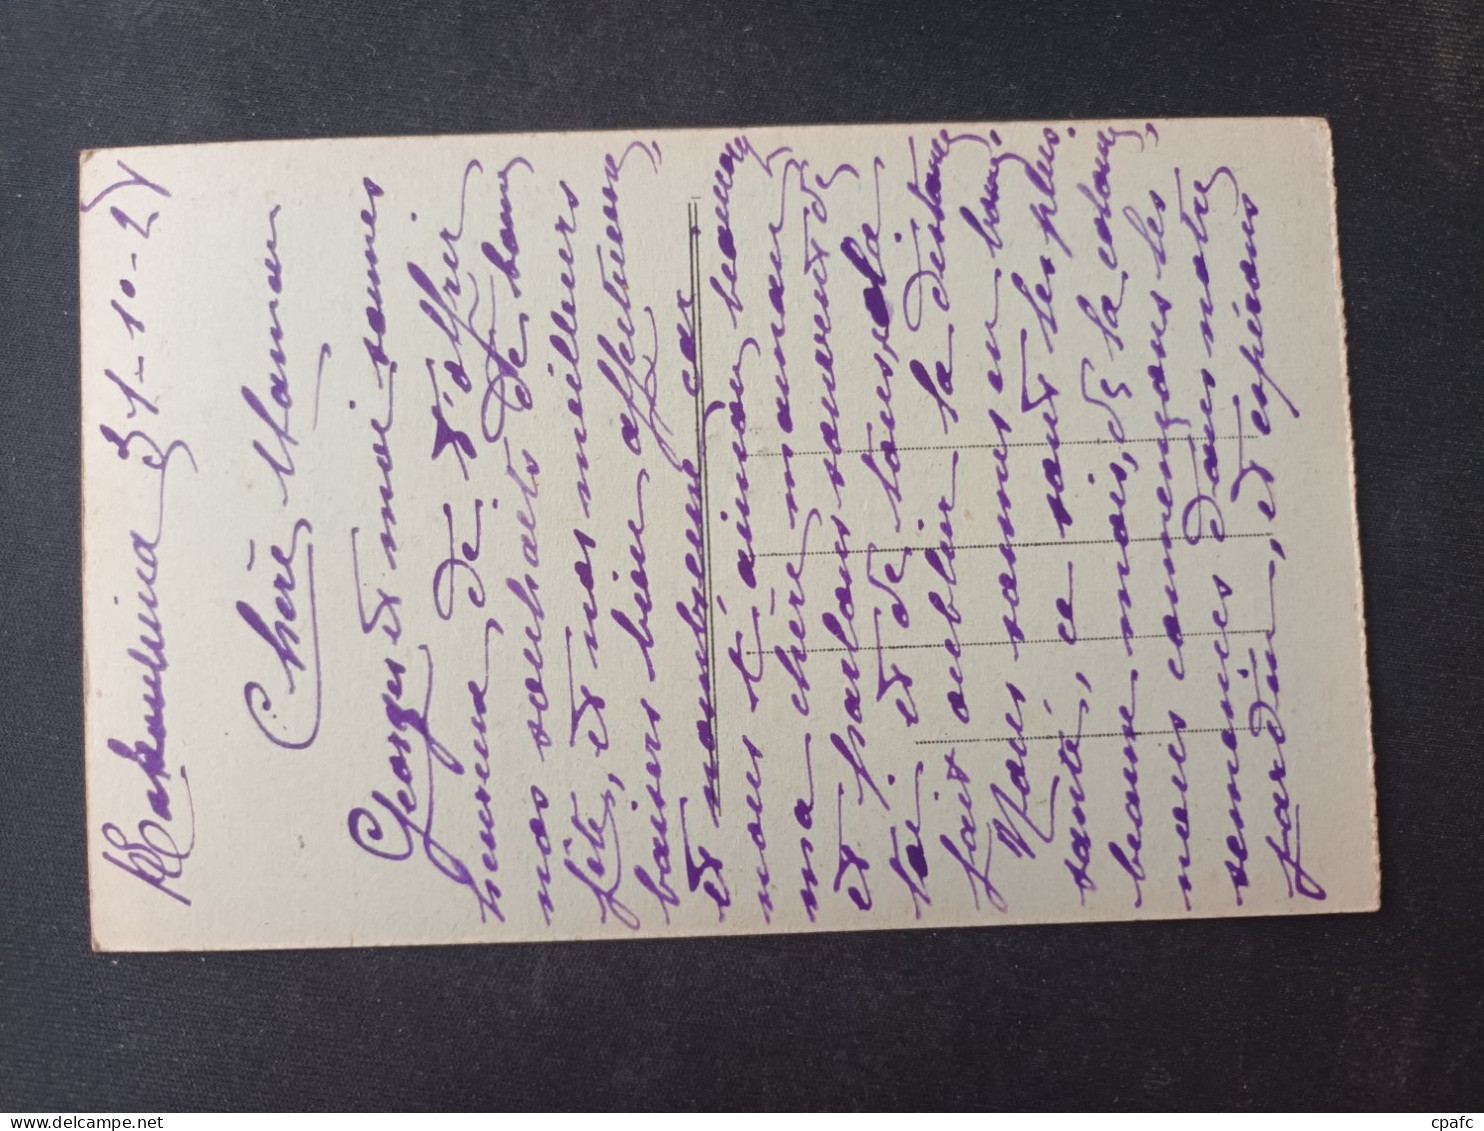 31-10-27
Chère Maman
Georges et moi sommes
heureux de t'offrir
nos souhaits de bonne
fête, et nos meilleurs
baisers bien affectueux
et nombreux car
nous t'aimons beaucoup
ma chère maman,
et parlons souvent de
toi. et de tous, la
fait oublier la distance
Nous sommes en bonne
santé, ce sont les plus
beaux mois, de la colonie,
nous commençons les
semences dans notre
jardin, et espérons
cpafc